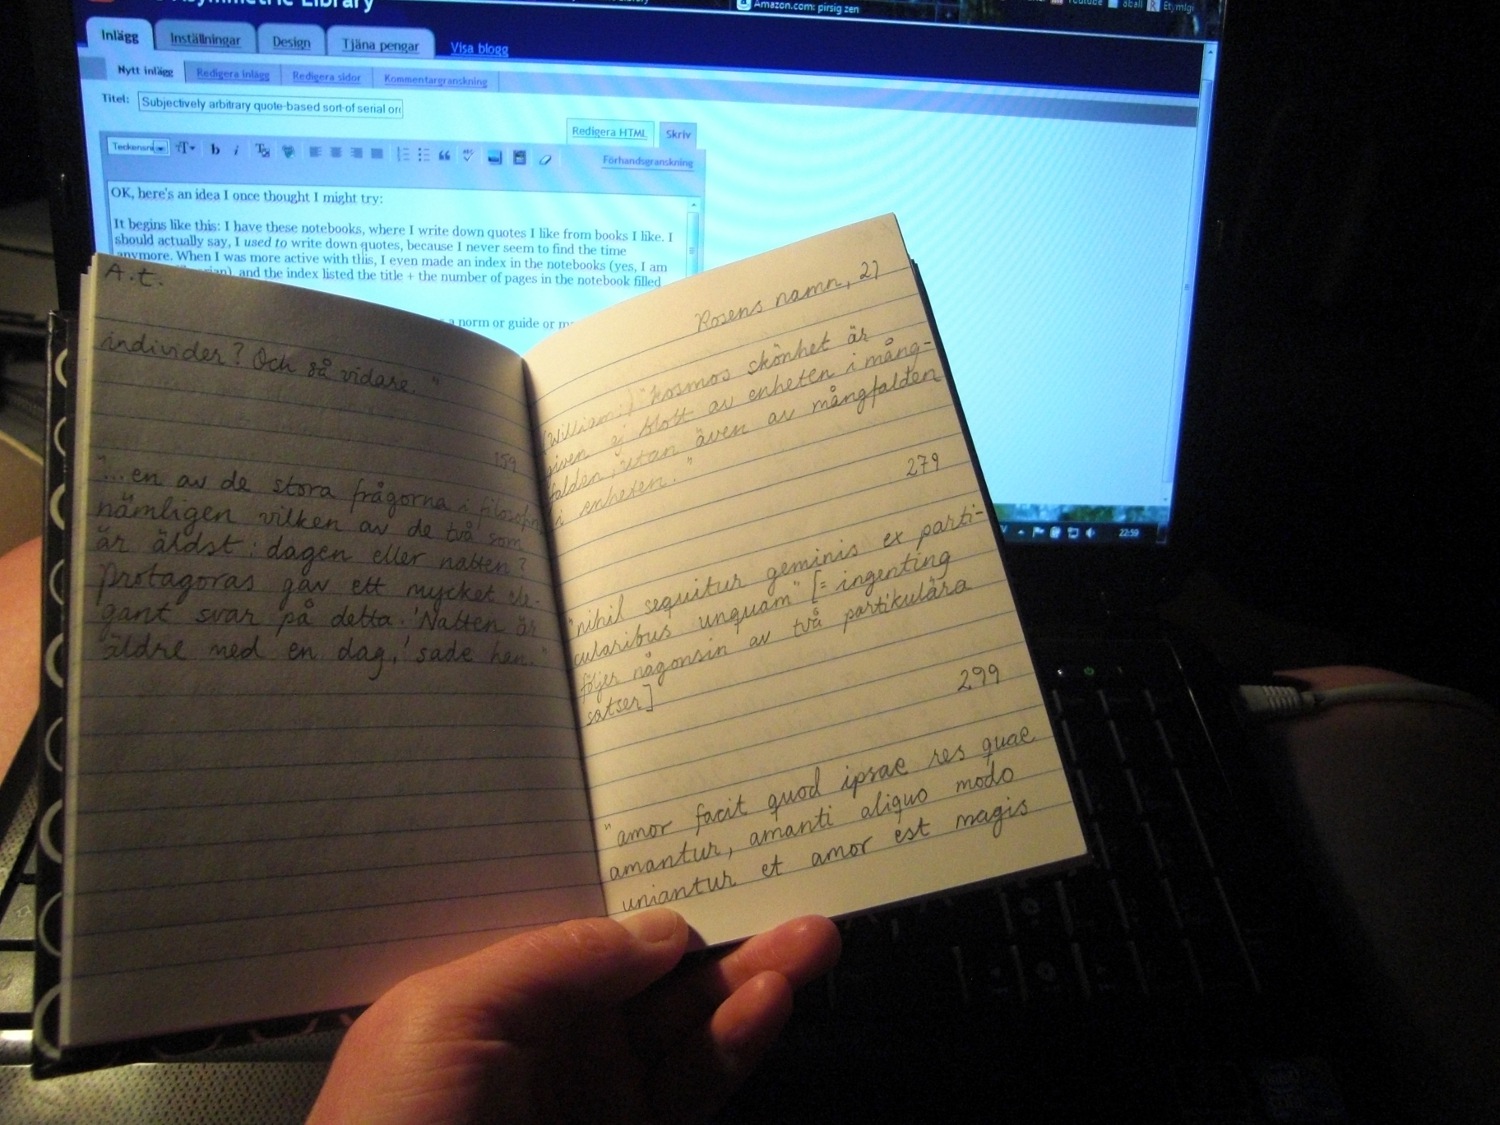 Asymmetric Library
Amazon.com: pirsig zen
Youtube
Inlägg
Inställningar
Design
Tjäna pengar
Visa blogg
Nytt inlägg
Redigera inlägg
Redigera sidor
Kommentargranskning
Titel:
Subjectively arbitrary quote-based sort of serial
Redigera HTML
Skriv
Förhandsgranskning
OK, here's an idea I once thought I might try:
It begins like this: I have these notebooks, where I write down quotes I like from books I like. I
should actually say, I used to write down quotes, because I never seem to find the time
anymore. When I was more active with this, I even made an index in the notebooks (yes, I am
and the index listed the title + the number of pages in the notebook filled
a norm or guide or
22:59
A.t.
individer? Och så vidare."
159
"...en av de stora frågorna i
nämligen vilken av de två som
är äldst: dagen eller natten?
Protagoras gav ett mycket ele-
gant svar på detta. 'Natten är
äldre med en dag,' sade han."
Rosens namn, 27
(William:) "Kosmos skönhet är
given ej blott av enheten i mång-
falden, utan även av mångfalden
i enheten."
279
"nihil sequitur geminis ex parti-
cularibus unquam" [= ingenting
följer någonsin av två partikulära
satser]
299
"amor facit quod ipsae res quae
amantur, amanti aliquo modo
uniantur et amor est magis